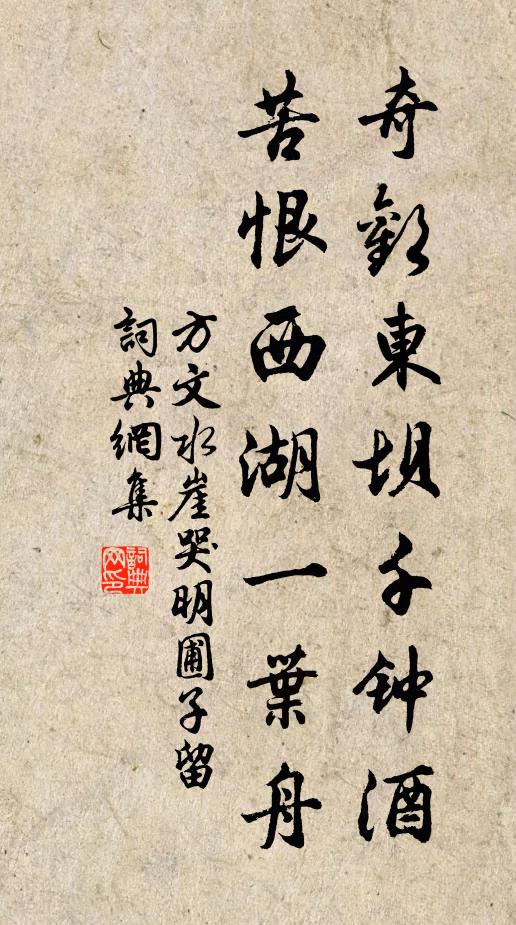 奇歡東坝千钟酒
苦恨西湖一葉舟
方文水崖哭明圃子留
詞典網集
詞典网印